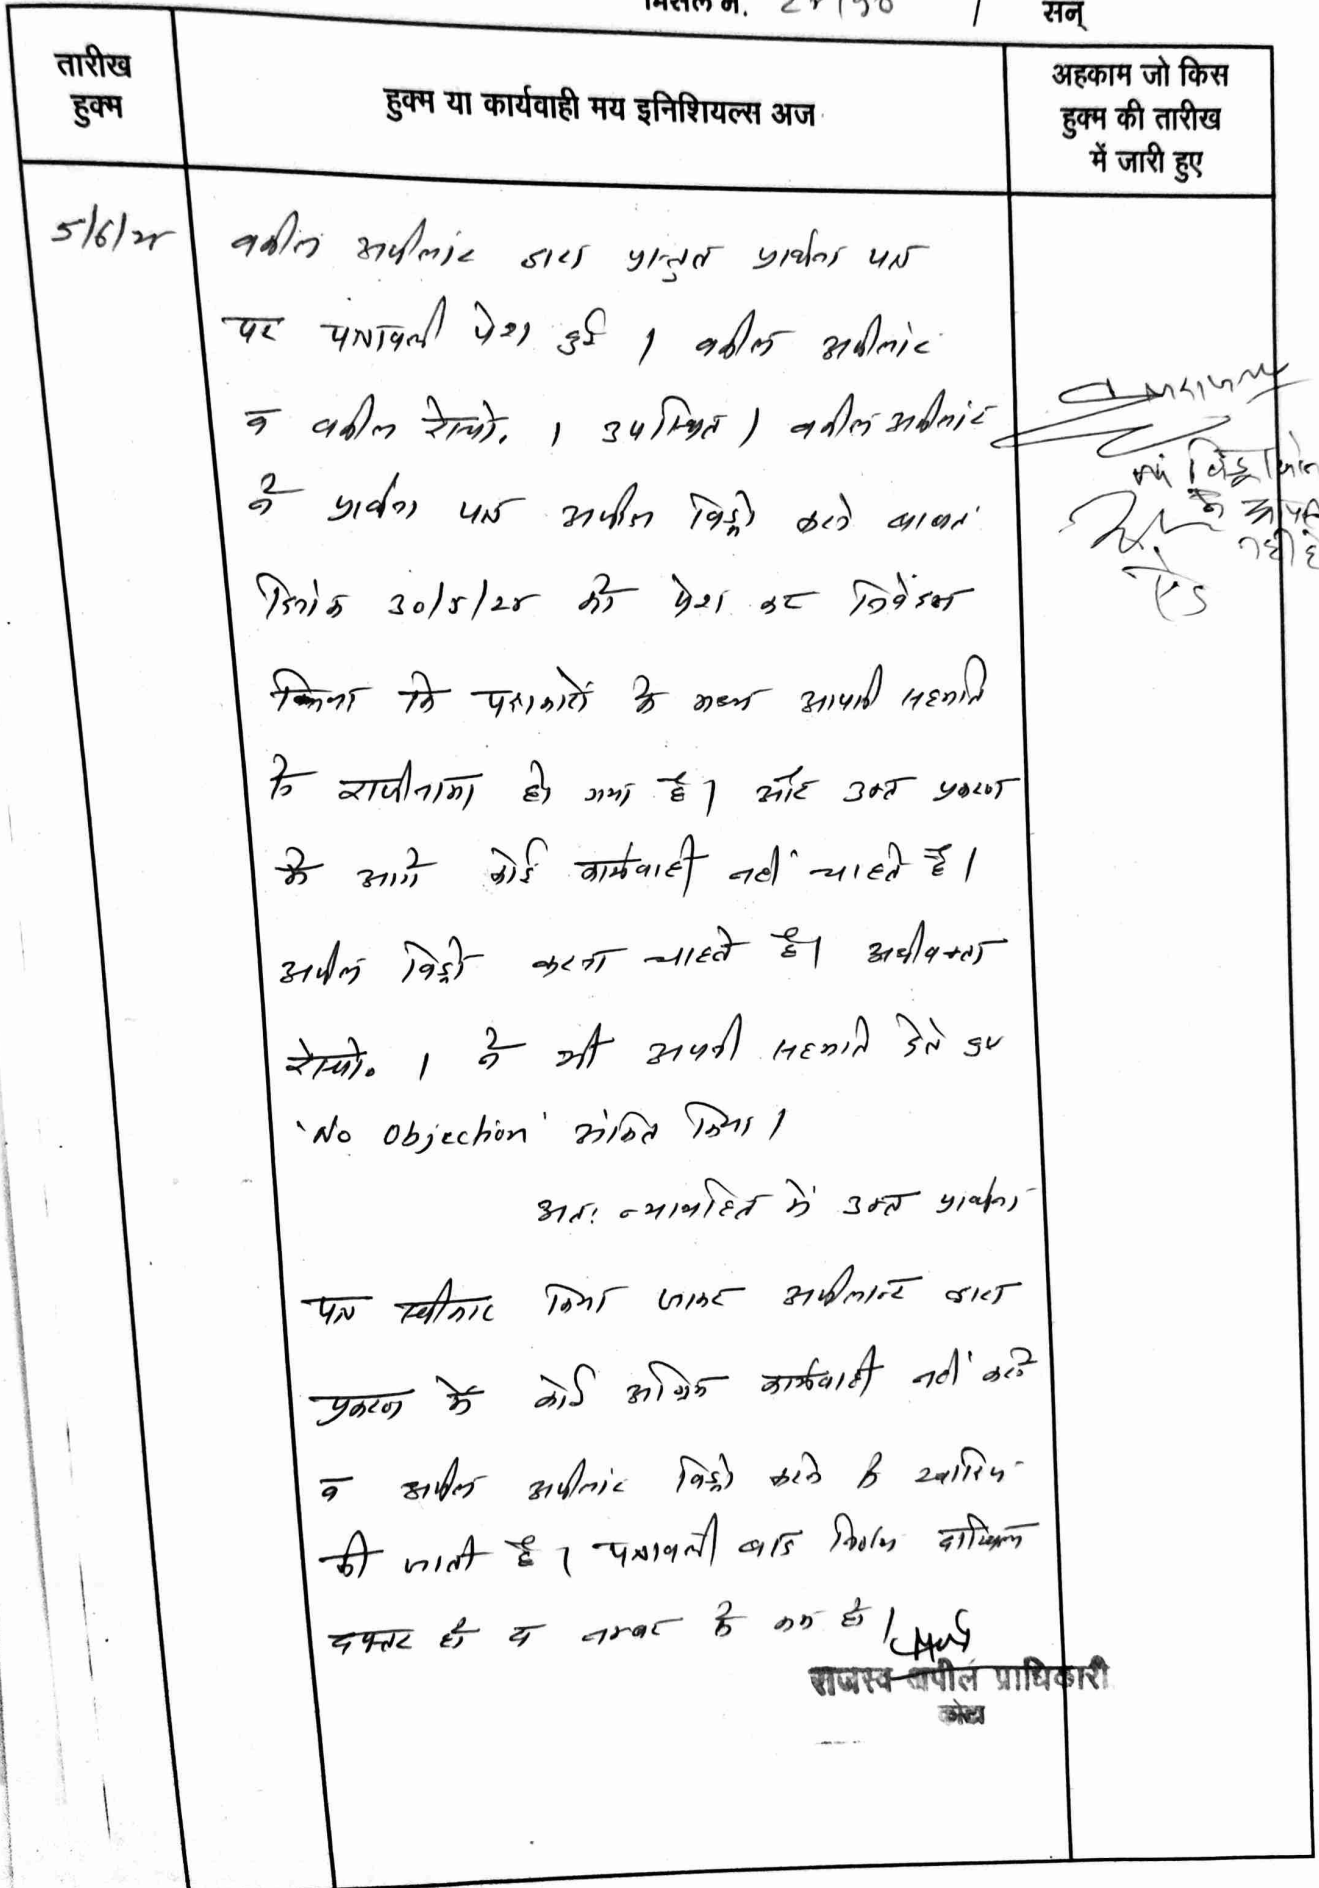 मिसल नं. / सन्
तारीख
हुक्म
हुक्म या कार्यवाही मय इनिशियल्स अज
अहकाम जो किस
हुक्म की तारीख
में जारी हुए
5/6/24
वकील अपीलांट द्वारा प्रस्तुत प्रार्थना पत्र
पर पत्रावली पेश हुई । वकील अपीलांट
व वकील रेस्पो. 1 उपस्थित । वकील अपीलांट
ने प्रार्थना पत्र अपील विड्रो करने बाबत
दिनांक 30/5/24 को पेश कर निवेदन
किया कि पक्षकारों के मध्य आपसी सहमति
से राजीनामा हो गया है । और उक्त प्रकरण
में आगे कोई कार्यवाही नहीं चाहते है ।
अपील विड्रो करना चाहते है । अधीवक्ता
रेस्पो. 1 ने भी अपनी सहमति देते हुए
'No Objection' अंकित किया ।
अतः न्यायहित में उक्त प्रार्थना
पत्र स्वीकार किया जाकर अपीलान्ट द्वारा
प्रकरण में कोई अग्रिम कार्यवाही नहीं करने
व अपील अपीलांट विड्रो करने से खारिज
की जाती है । पत्रावली बाद निर्णय दाखिल
दफ्तर हो व नम्बर से कम हो ।
राजस्व अपील प्राधिकारी
कोटा
नहीं है